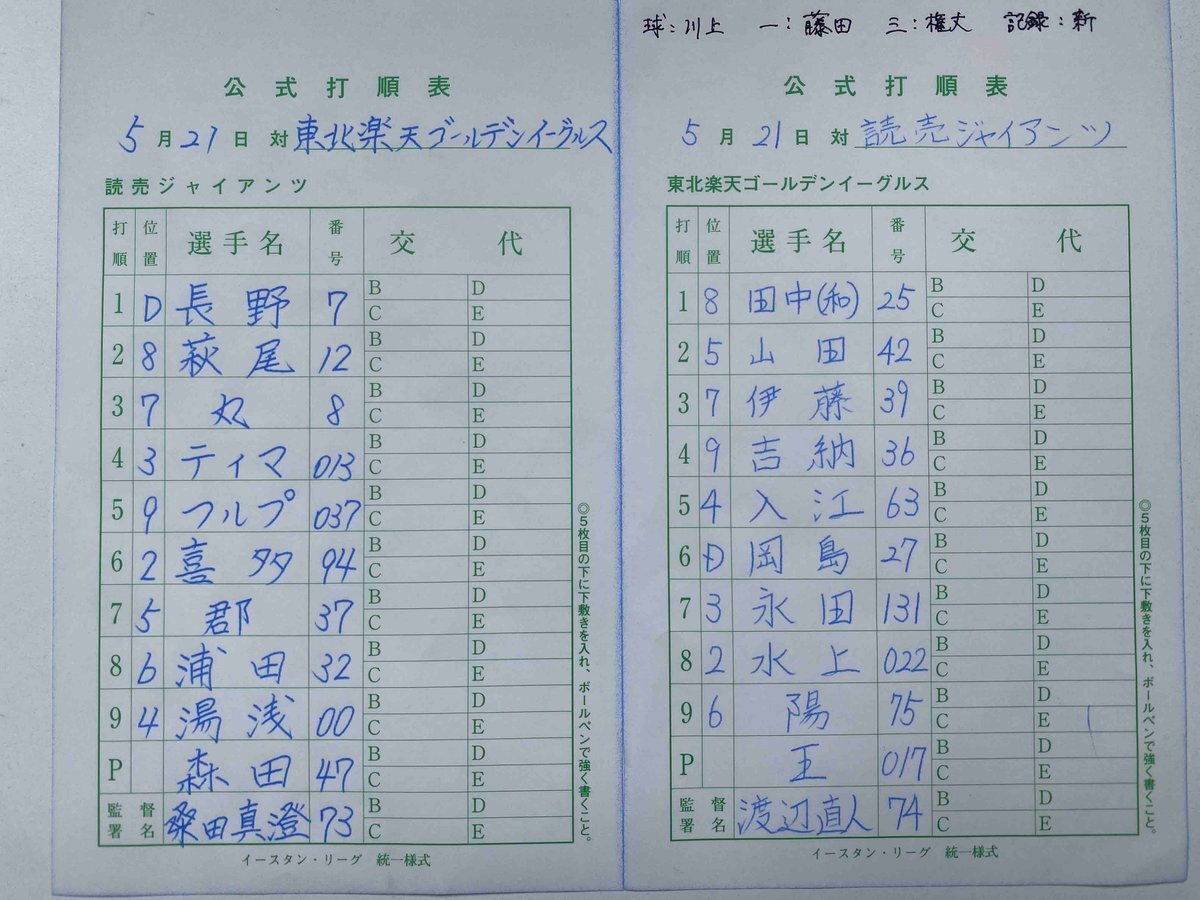 公式打順表
5月21日 対 東北楽天ゴールデンイーグルス
読売ジャイアンツ
打順 位置 選手名 番号 交代
1 D 長野 7 B D C E
2 8 萩尾 12 B D C E
3 7 丸 8 B D C E
4 3 ティマ 013 B D C E
5 9 フルプ 037 B D C E
6 2 喜多 94 B D C E
7 5 郡 37 B D C E
8 6 浦田 32 B D C E
9 4 湯浅 00 B D C E
P 森田 47 B D C E
監督署名 桑田真澄 73 B D C E
◎5枚目の下に下敷きを入れ、ボールペンで強く書くこと。
イースタン・リーグ 統一様式
球:川上 一:藤田 三:権丈 記録:新
公式打順表
5月21日 対 読売ジャイアンツ
東北楽天ゴールデンイーグルス
打順 位置 選手名 番号 交代
1 8 田中(和) 25 B D C E
2 5 山田 42 B D C E
3 7 伊藤 39 B D C E
4 9 吉納 36 B D C E
5 4 入江 63 B D C E
6 D 岡島 27 B D C E
7 3 永田 131 B D C E
8 2 水上 022 B D C E
9 6 陽 75 B D C E
P 王 017 B D C E
監督署名 渡辺直人 74 B D C E
◎5枚目の下に下敷きを入れ、ボールペンで強く書くこと。
イースタン・リーグ 統一様式